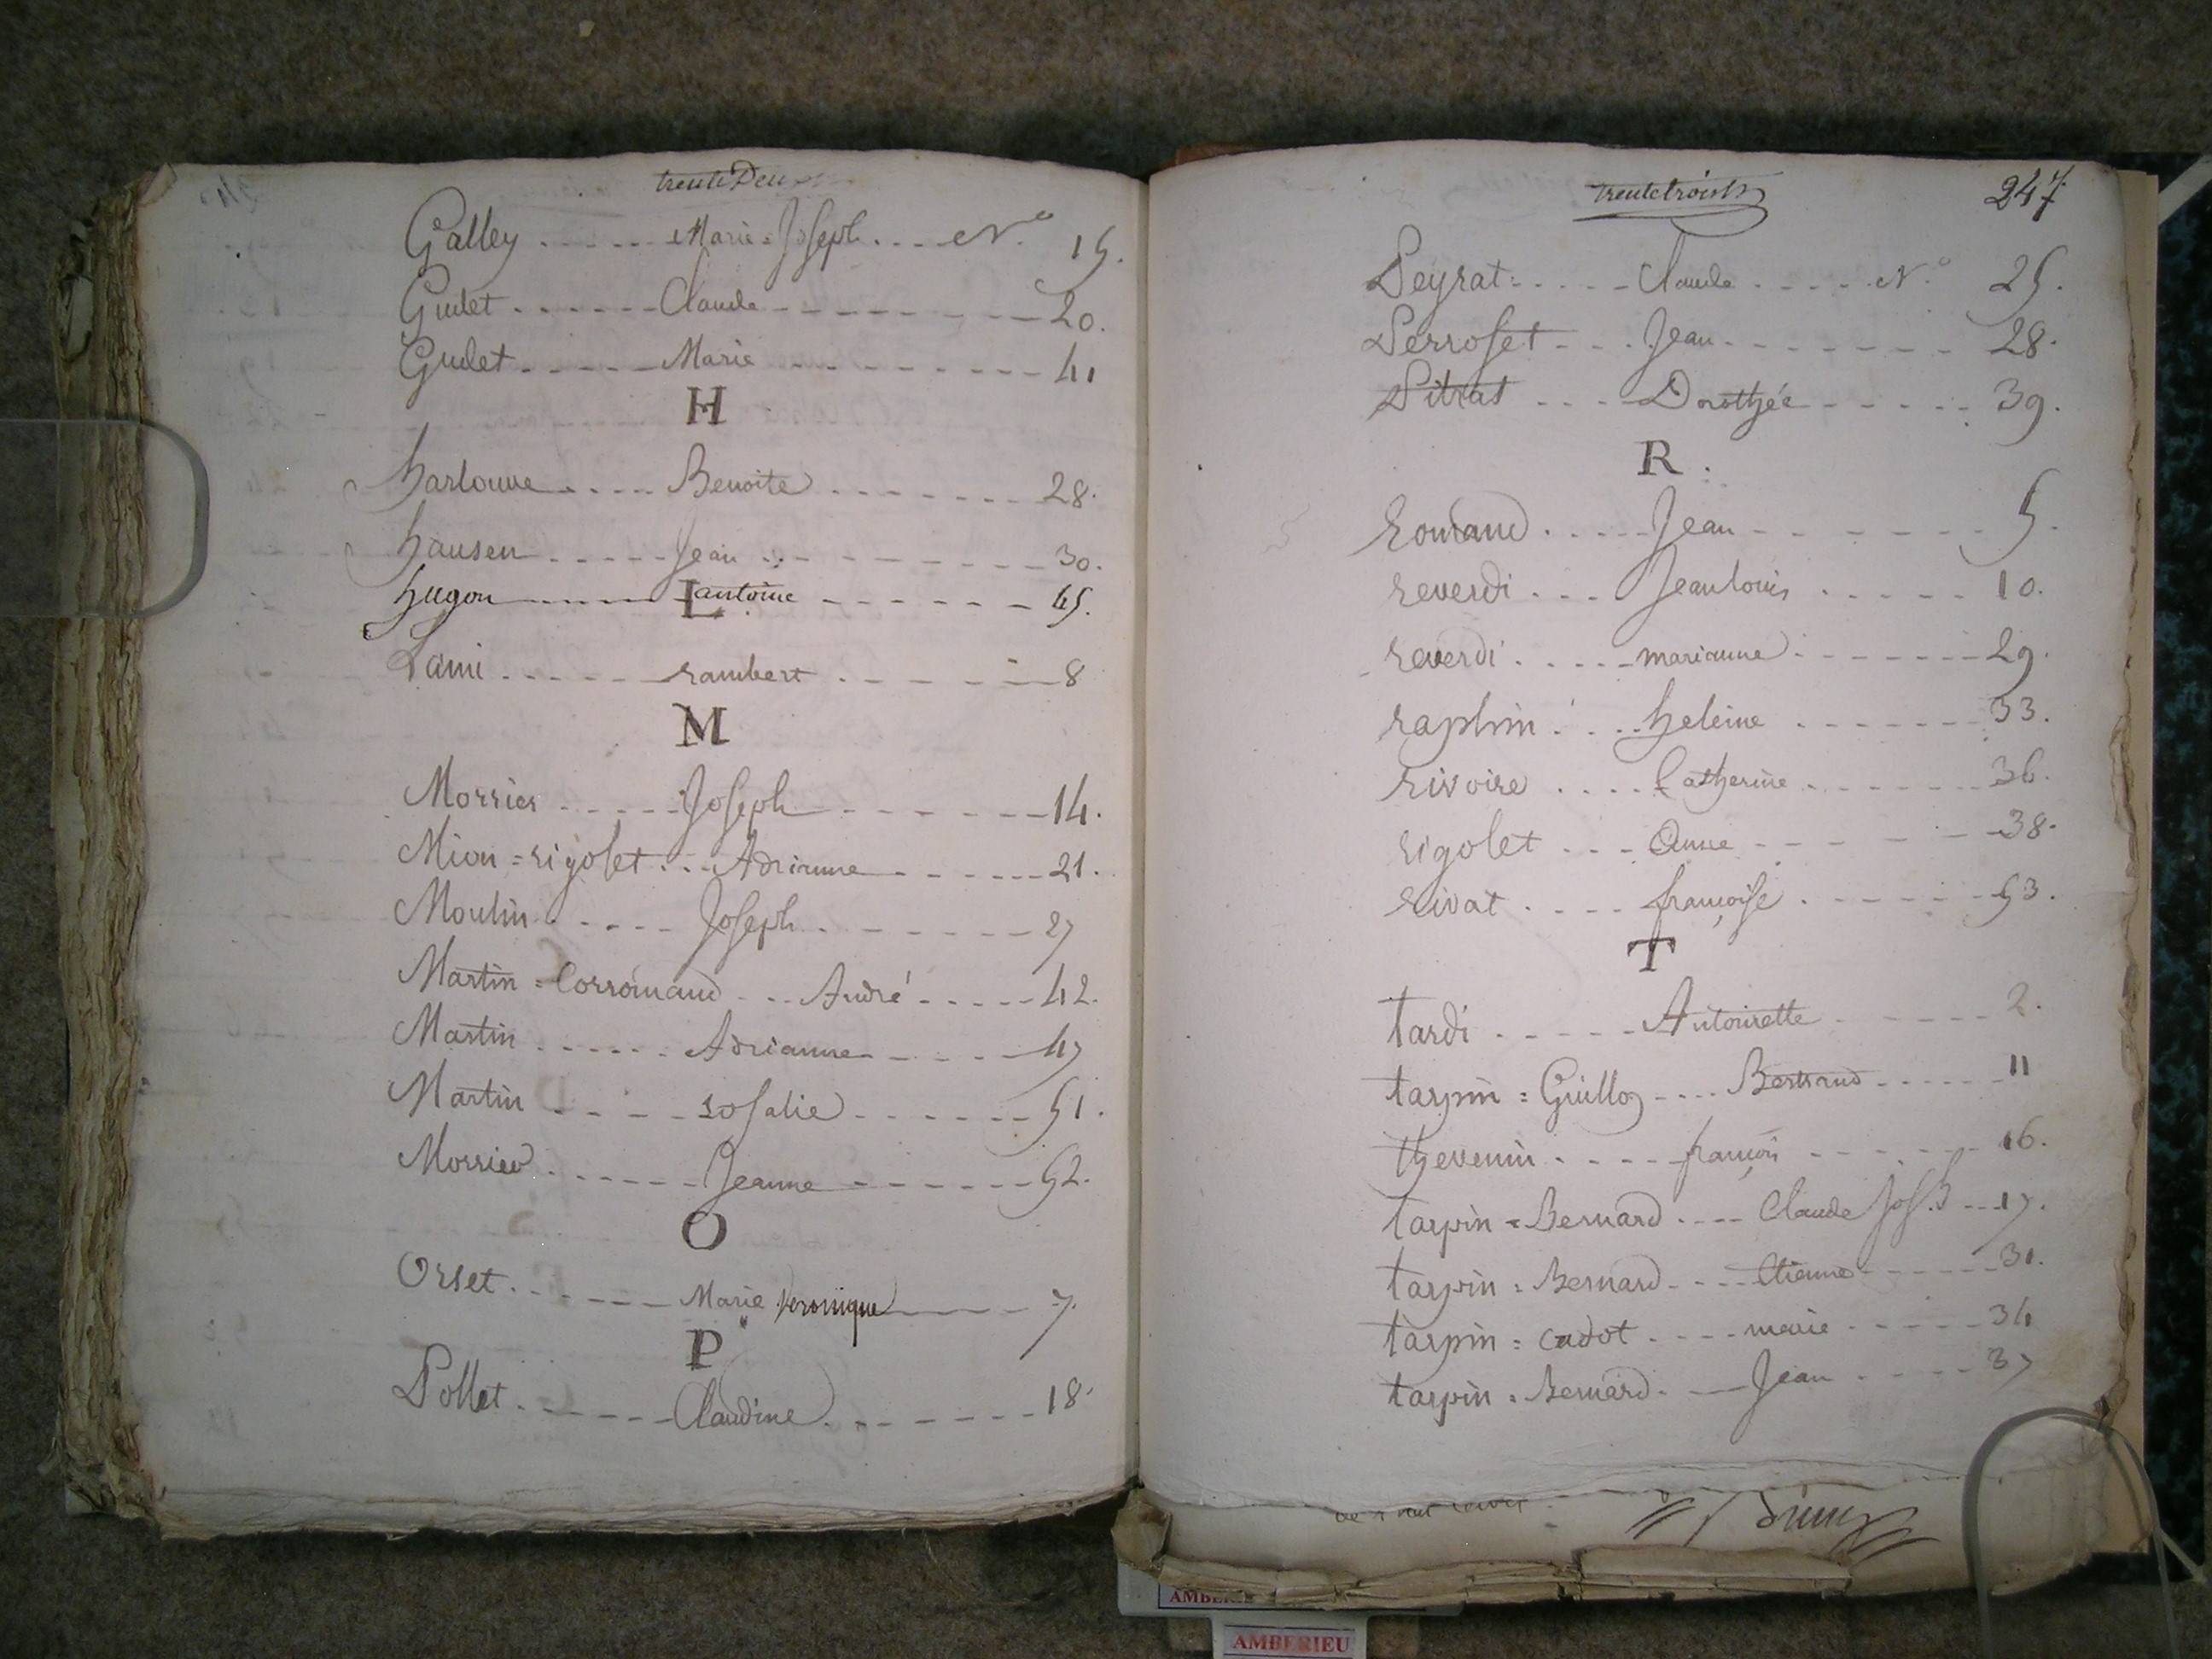 trente Deux
Galley ...... Marie = Joseph .... N.° 15.
Gudet ...... Claude --------- 20.
Gudet ...... Marie --------- 41
H
harlouve .... Benoite ....... 28.
hausen ..... Jean --------- 30.
hugon ------ antoine ------ 45.
L
Lami ...... rambert ------ 8
M
Morrier ..... Joseph ------ 14.
Mion = rigolet ... Adrianne ------ 21.
Moulin ..... Joseph ------- 27
Martin = Corromand ... André ..... 42.
Martin ...... Adrianne ----- 47
Martin ----- rosalie ------ 51.
Morrier ...... Jeanne ------ 52.
O
Orset ...... Marie veronique ------ 7.
P
Pollet ...... Claudine ....... 18.
trente trois
247.
Peyrat ..... Claude ..... N.° 25.
Perroset ... Jean -------- 28.
Pitrat .... Dorothée ----- 39.
R.
Romand ..... Jean ------ 5.
reverdi .... Jean louis ..... 10.
reverdi ..... marianne ------ 29.
raphin .... heleine ------- 33.
rivoire .... Catherine ------ 36.
rigolet ... Anne ------ 38.
rivat .... françoise ----- 53.
T
tardi ..... Antoinette ----- 2.
tarpin = Guilloz .... Bertrand ----- 11
thevenin ..... françois ------ 16.
tarpin = Bernard .... Claude Jos.h --- 17.
tarpin = Bernard .... Etienne ------ 31.
tarpin = cadot .... marie ----- 34
tarpin = Bernard .... Jean ----- 37
AMBERIEU